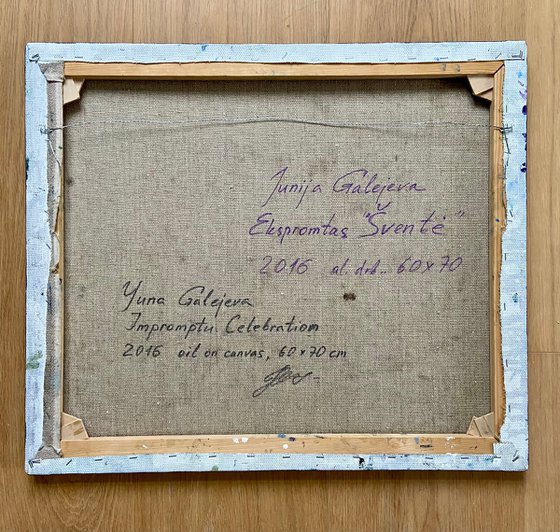 Junija Galejeva
Ekspromtas "Šventė"
2016 al. drb.. 60x70
Yuna Galejeva
Impromptu. Celebration
2016 oil on canvas, 60x70 cm